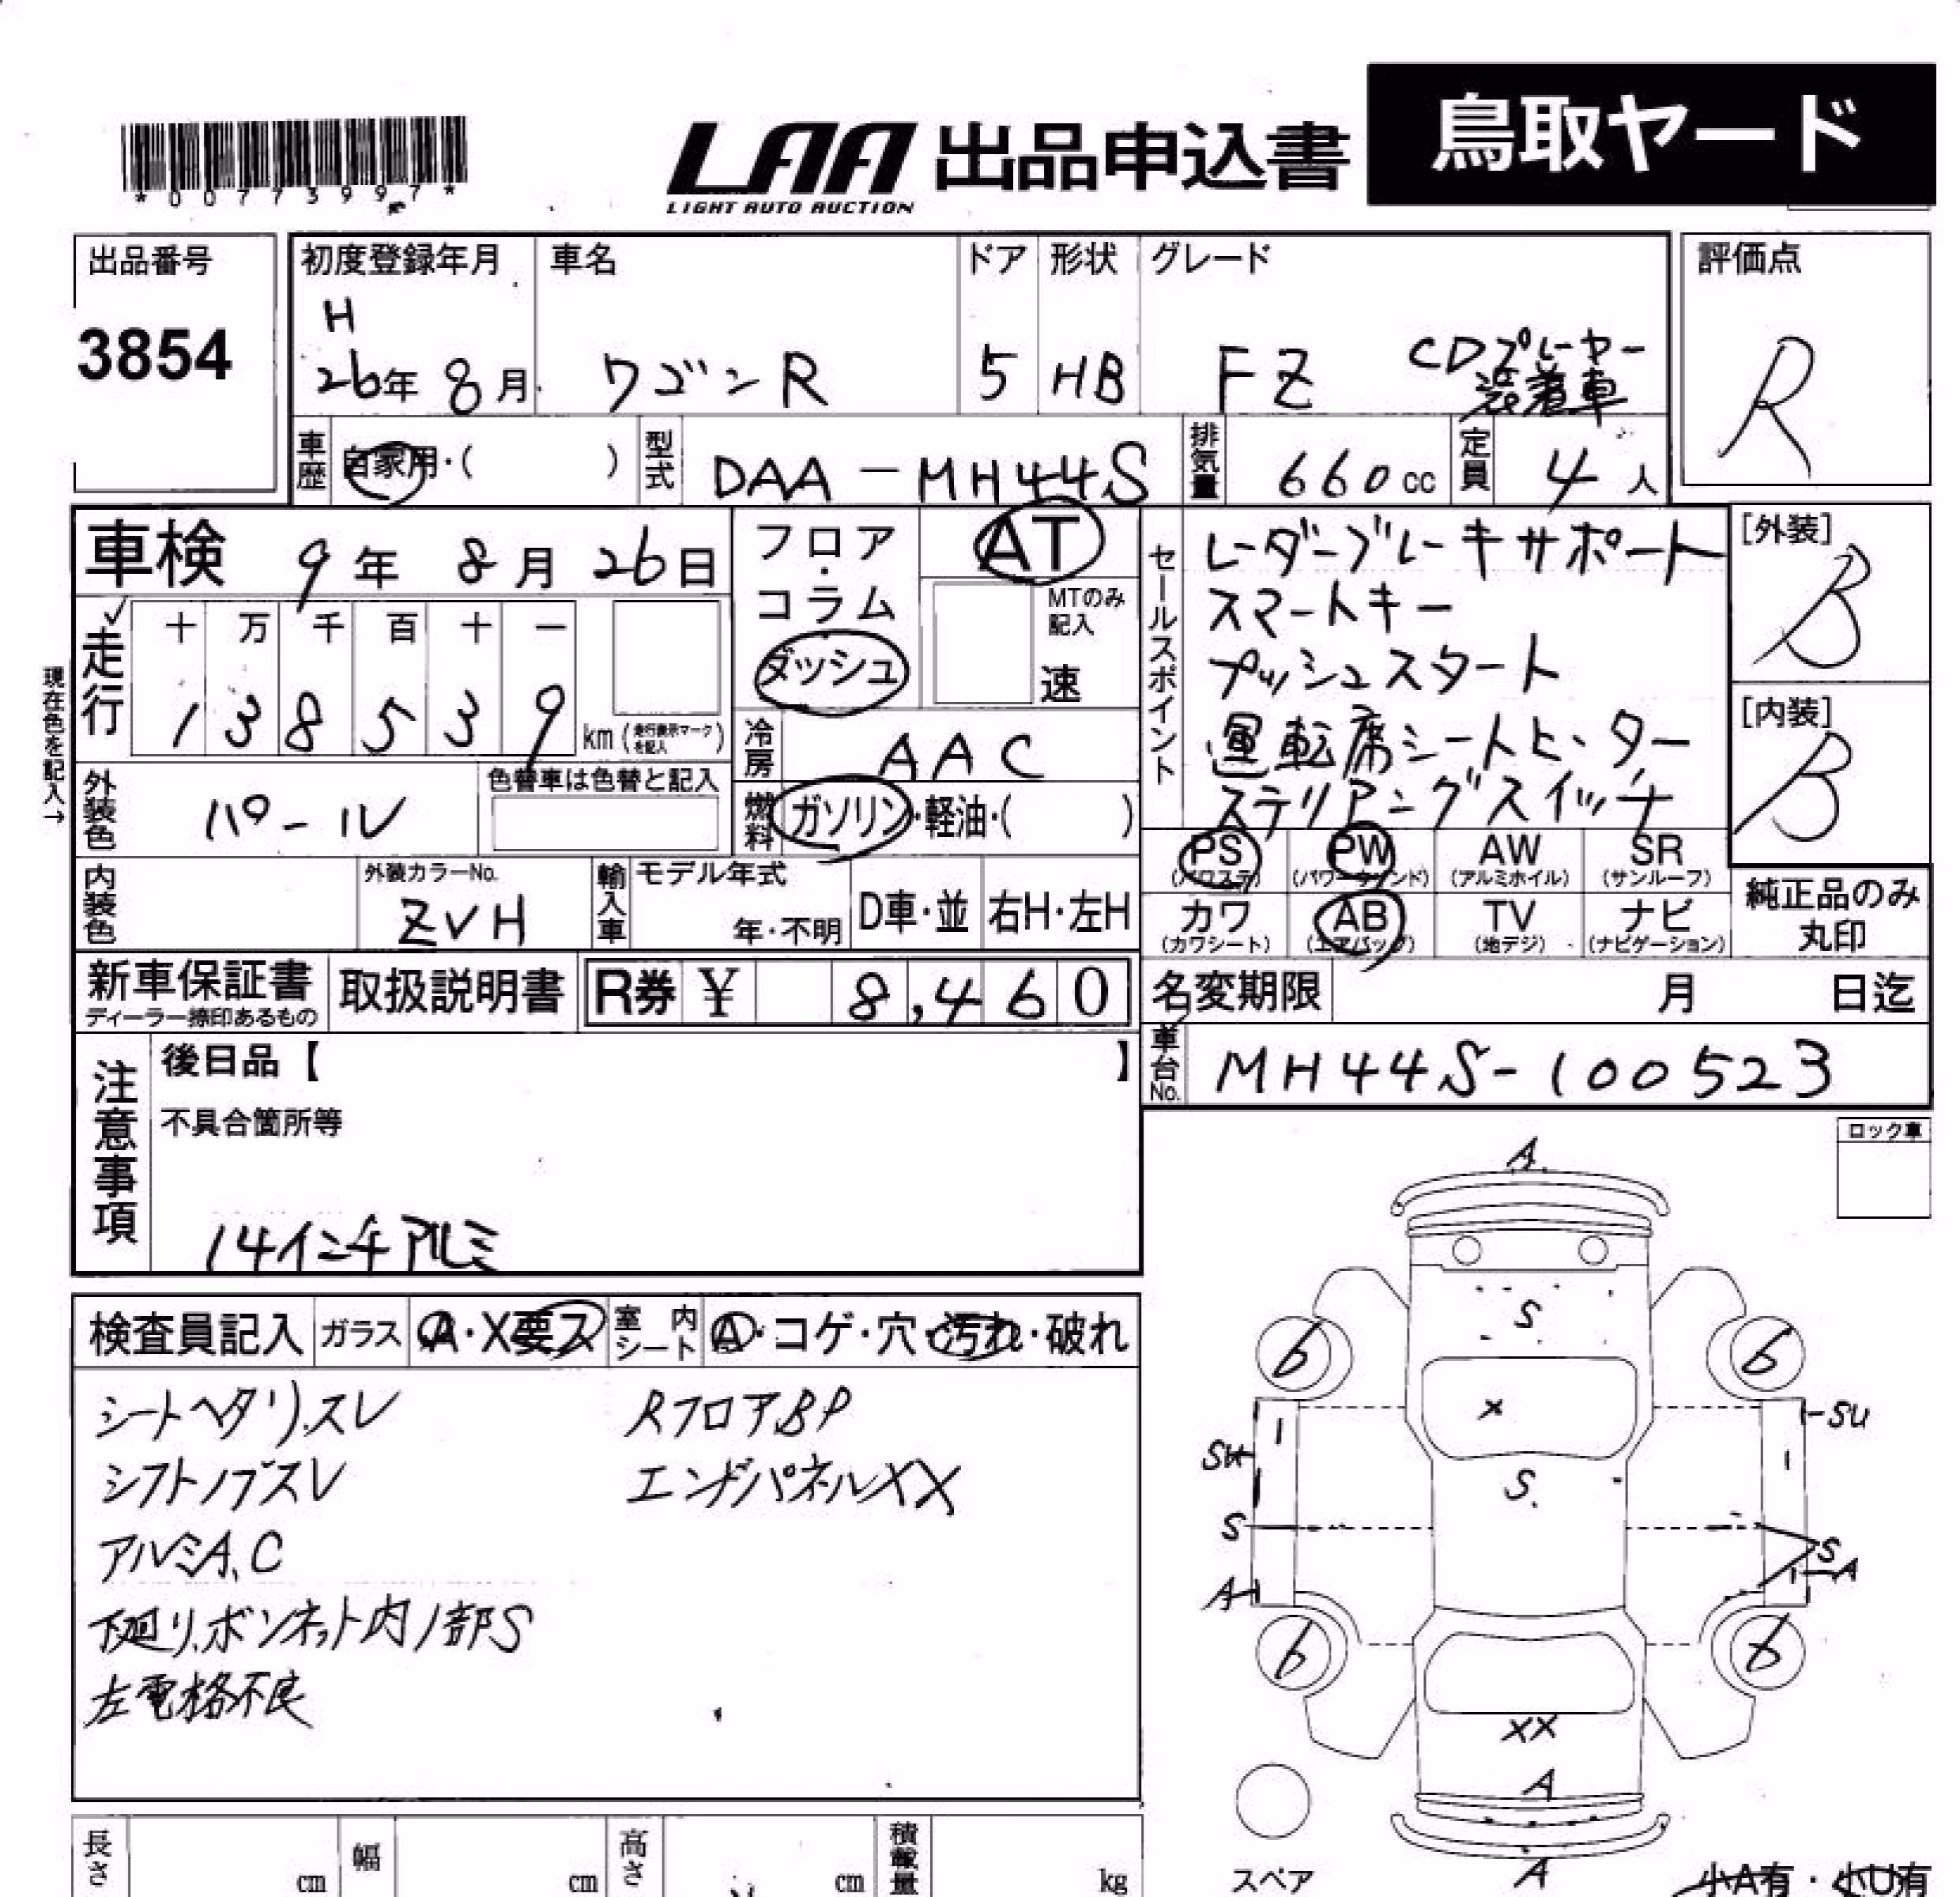 *00773997*
LAA 出品申込書 鳥取ヤード
LIGHT AUTO AUCTION
出品番号 3854
初度登録年月 H26年 8月
車名 ワゴンR
ドア 5
形状 HB
グレード FZ CDプレーヤー装着車
評価点 R
車歴 自家用・( )
型式 DAA-MH44S
排気量 660cc
定員 4人
車検 9年 8月 26日
フロア・コラム・ダッシュ
AT
MTのみ記入 速
セールスポイント
レーダーブレーキサポート
スマートキー
プッシュスタート
運転席シートヒーター
ステリアングスイッチ
[外装] B
[内装] B
現在色を記入→
走行 十 万 千 百 十 一
1 3 8 5 3 9 km (走行表示マークを記入)
冷房 AAC
燃料 ガソリン・軽油・( )
外装色 パール
色替車は色替と記入
内装色
外装カラーNo. ZVH
輸入車 モデル年式 年・不明 D車・並 右H・左H
PS (パワステ) PW (パワーウィンド) AW (アルミホイル) SR (サンルーフ)
カワ (カワシート) AB (エアバッグ) TV (地デジ) ナビ (ナビゲーション)
純正品のみ丸印
新車保証書 ディーラー捺印あるもの
取扱説明書
R券 ¥ 8,460
名変期限 月 日迄
車台No. MH44S-100523
注意事項
後日品【 】
不具合箇所等
14インチアルミ
ロック車
検査員記入 ガラス A・X要ス 室内シート A・コゲ・穴・汚れ・破れ
シートヘタリ.スレ
シフトノブスレ
アルミA.C
下廻り.ボンネット内ノ部S
左電格不良
RフロアBP
エンドパネルXX
A
S
6 6
X
SU SU
S.
S S
A A
6 6
XX
A
A
スペア
小A有・小U有
長さ cm 幅 cm 高さ cm 積載量 kg